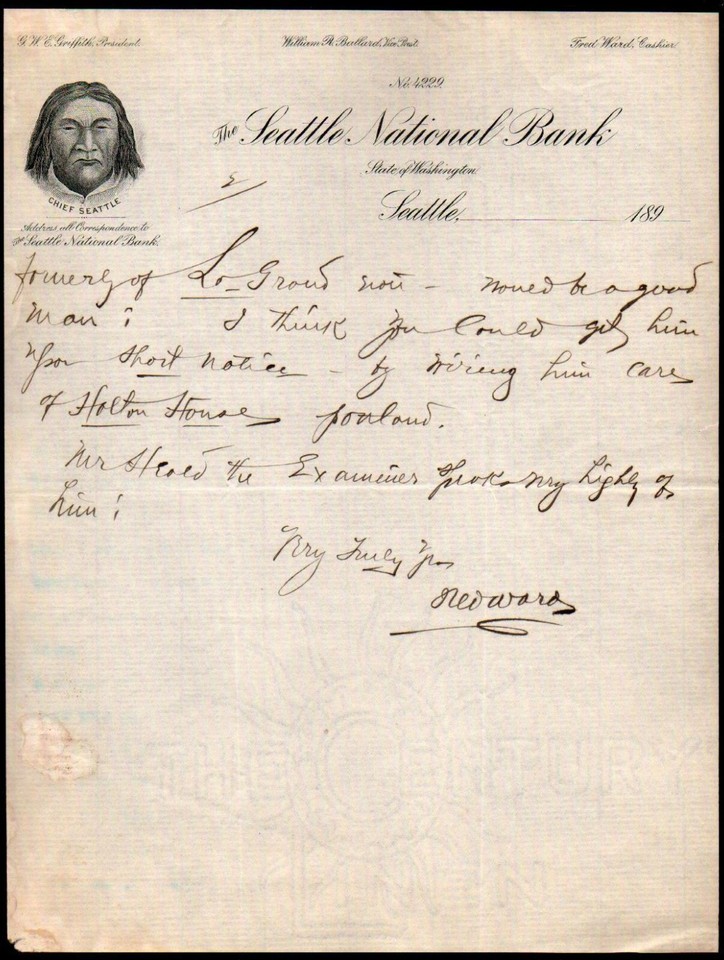 G. W. E. Griffith, President.
William R. Ballard, Vice Prest.
Fred Ward, Cashier
No. 4229.
The Seattle National Bank
State of Washington
CHIEF SEATTLE
2
Seattle, 189
Address all Correspondence to
The Seattle National Bank.
formerly of La-Grand now - would be a good
man! I think you could get him
upon short notice - by wiring him care
of Holton House portland.
Mr Heald the Examiner speaks very highly of
him!
Very Truly Yrs
Fred Ward
THE CENTURY
LINEN